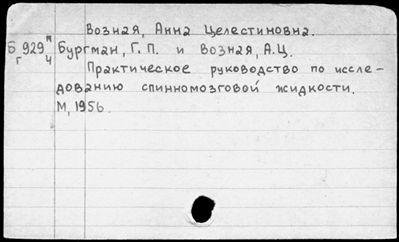 Возная, Анна Целестиновна.
Б 929 п Бургман, Г. П. и Возная, А.Ц.
г ч
Практическое руководство по иссле-
дованию спинномозговой жидкости.
М, 1956.